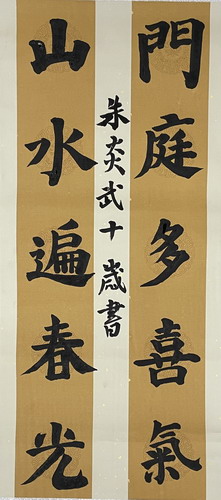 門庭多喜氣
山水遍春光
朱炎武十歲書